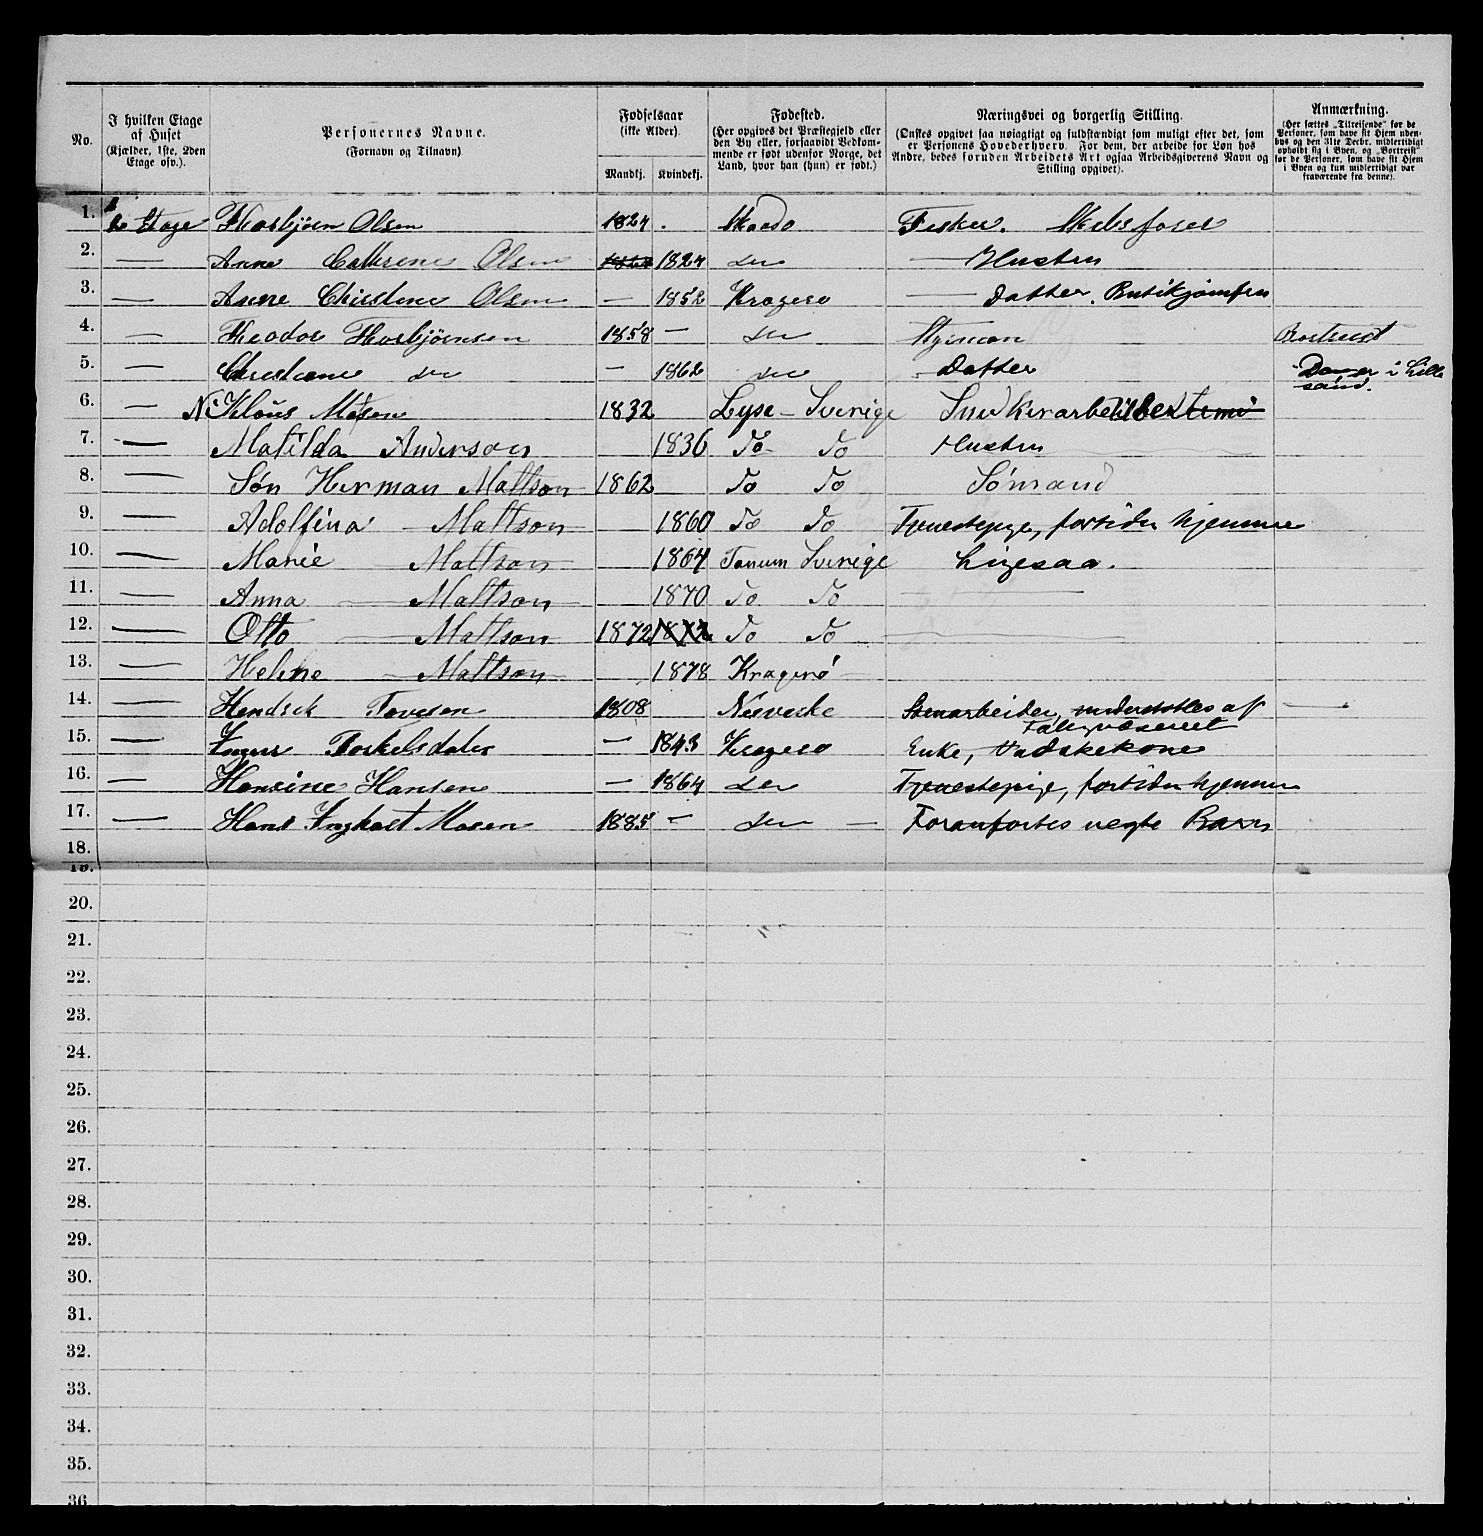 No. | I hvilken Etage af Huset (Kjælder, 1ste, 2den Etage osv.). | Personernes Navne. (Fornavn og Tilnavn) | Fødselsaar (ikke Alder). Mandkj. Kvindekj. | Fødested. (Her opgives det Præstegjeld eller den By eller, forsaavidt Vedkommende er født udenfor Norge, det Land, hvor han (hun) er født.) | Næringsvei og borgerlig Stilling. (Ønskes opgivet saa nøiagtigt og fuldstændigt som muligt efter det, som er Personens Hovederhverv. For dem, der arbeide for Løn hos Andre, bedes foruden Arbeidets Art ogsaa Arbeidsgiverens Navn og Stilling opgivet). | Anmærkning. (Her sættes „Tilreisende" for de Personer, som have sit Hjem udenbys og den 31te Decbr. midlertidigt opholdt sig i Byen, og „Bortreist" for de Personer, som have sit Hjem i Byen og kun midlertidigt var fraværende fra denne).
1. Etage Thorbjörn Olsen 1824 Skaadø Fisker.
2. — Anne Cathrine Olsen 1824 do Hustru
3. — Anne Christine Olsen — 1852 Kragerø — Datter. Butikjomfru
4. — Theodor Thorbjörnsen 1858 — do Styrman Bortreist
5. — Christiane do — 1862 do Datter i Lillesand.
6. — 1832 Lyse - Sverige
7. — Matilda Anderson 1836 Do Do Hustru
8. — Søn Herman Mattson 1862 Do Do Sömand
9. — Adolfina — Mattson 1860 Do Do Tjenestepige, fortiden hjemme
10. — Marie — Mattson 1864 Tanum Sverige Ligesaa.
11. — Anna — Mattson 1870 Do Do —
12. — Otto — Mattson 1872 1872 Do Do —
13. — Helene — Mattson 1878 Kragerø —
14. — Hendrek Tovesen 1808 Stenarbeider, understøttes af Fattigvæsenet —
15. — Torkelsdater — 1843 Kragerø Enke, Vadskekone
16. — Hansine Hansen — 1864 do Tjenestepige, fortiden hjemme
17. — Hans Ingkart Masen 1885 — do — Foranførtes uegte Barn
18.
19.
20.
21.
22.
23.
24.
25.
26.
27.
28.
29.
30.
31.
32.
33.
34.
35.
36